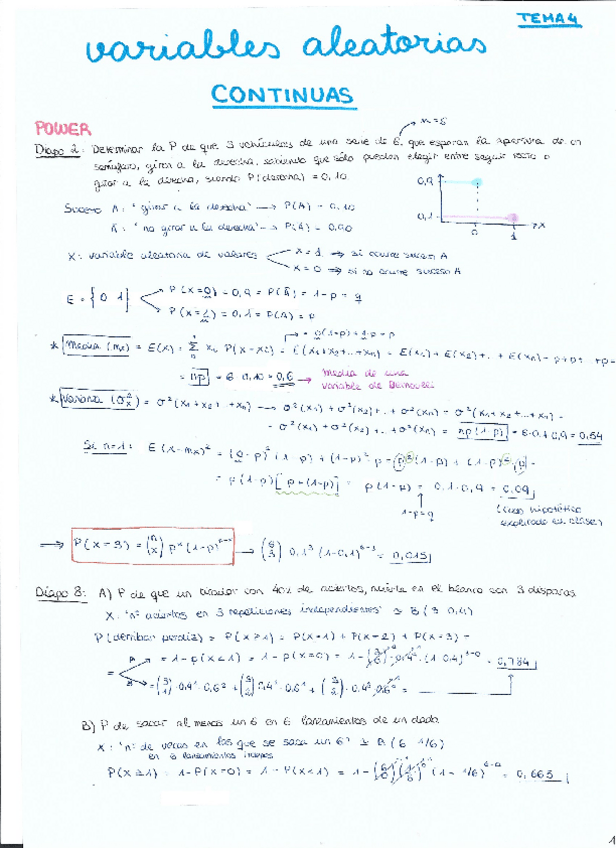 TEMA 4
variables aleatorias
CONTINUAS
POWER
n = 6
Diapo 2: Determinar la P de que 3 vehículos de una serie de 6, que esperan la apertura de un
semáforo, giren a la derecha, sabiendo que sólo pueden elegir entre seguir recto o
girar a la derecha, siendo P(derecha) = 0,10
Suceso A: "girar a la derecha" → P(A) = 0,10
Ā: "no girar a la derecha" → P(Ā) = 0,90
0,9
0,1
0 1 x
X: variable aleatoria de valores
x = 1 → si ocurre suceso A
x = 0 → si no ocurre suceso A
E = { 0 1 }
P(X=0) = 0,9 = P(Ā) = 1-p = q
P(X=1) = 0,1 = P(A) = p
= 0(1-p)+1·p = p
* Media (mx) = E(X) = Σ xn P(X=xi) = E(x1+x2+...+xn) = E(x1)+E(x2)+..+E(xn) = p+p+ +p=
= np = 6·0,10 = 0,6 → media de una
variable de Bernouilli
* Varianza (σ²x) = σ²(x1+x2+ +xn) → σ²(x1)+σ²(x2)+..+σ²(xn) = σ²(x1+x2+...+xn) =
= σ²(x1)+σ²(x2)+..+σ²(xn) = np(1-p) = 6·0,1·0,9 = 0,54
Si n=1: E(X-mx)² = (0-p)²(1-p)+(1-p)²·p = p²(1-p)+(1-p)²p =
= p(1-p)[p+(1-p)] = p(1-p) = 0,1·0,9 = 0,09
1-p=q
(caso hipotético
explicado en clase)
⇒ P(X=3) = (n x) pˣ(1-p)ⁿ⁻ˣ → (6 3) 0,1³(1-0,1)⁶⁻³ = 0,015
Diapo 8: A) P de que un tirador con 40% de aciertos, acierte en el blanco con 3 disparos
X: "nº aciertos en 3 repeticiones independientes" ≅ B(3 0,4)
P(derribar perdiz) = P(X≥1) = P(X=1)+P(X=2)+P(X=3) =
A = 1-P(X<1) = 1-P(X=0) = 1-(3 0)·0,4⁰·(1-0,4)³⁻⁰ = 0,784
B = (3 1)·0,4¹·0,6²+(3 2)·0,4²·0,6¹+(3 3)·0,4³·0,6⁰ =
B) P de sacar al menos un 6 en 6 lanzamientos de un dado
X: "nº de veces en las que se saca un 6" ≅ B(6 1/6)
en 6 lanzamientos
P(X≥1) = 1-P(X=0) = 1-P(X<1) = 1-(6 0)(1/6)⁰(1-1/6)⁶⁻⁰ = 0,665
1